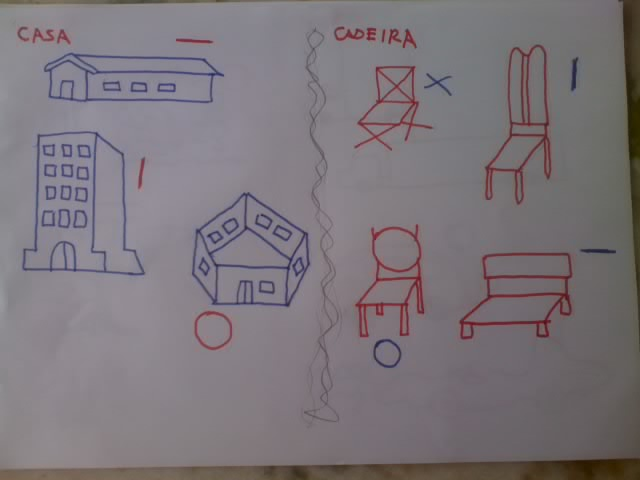 CASA
CADEIRA